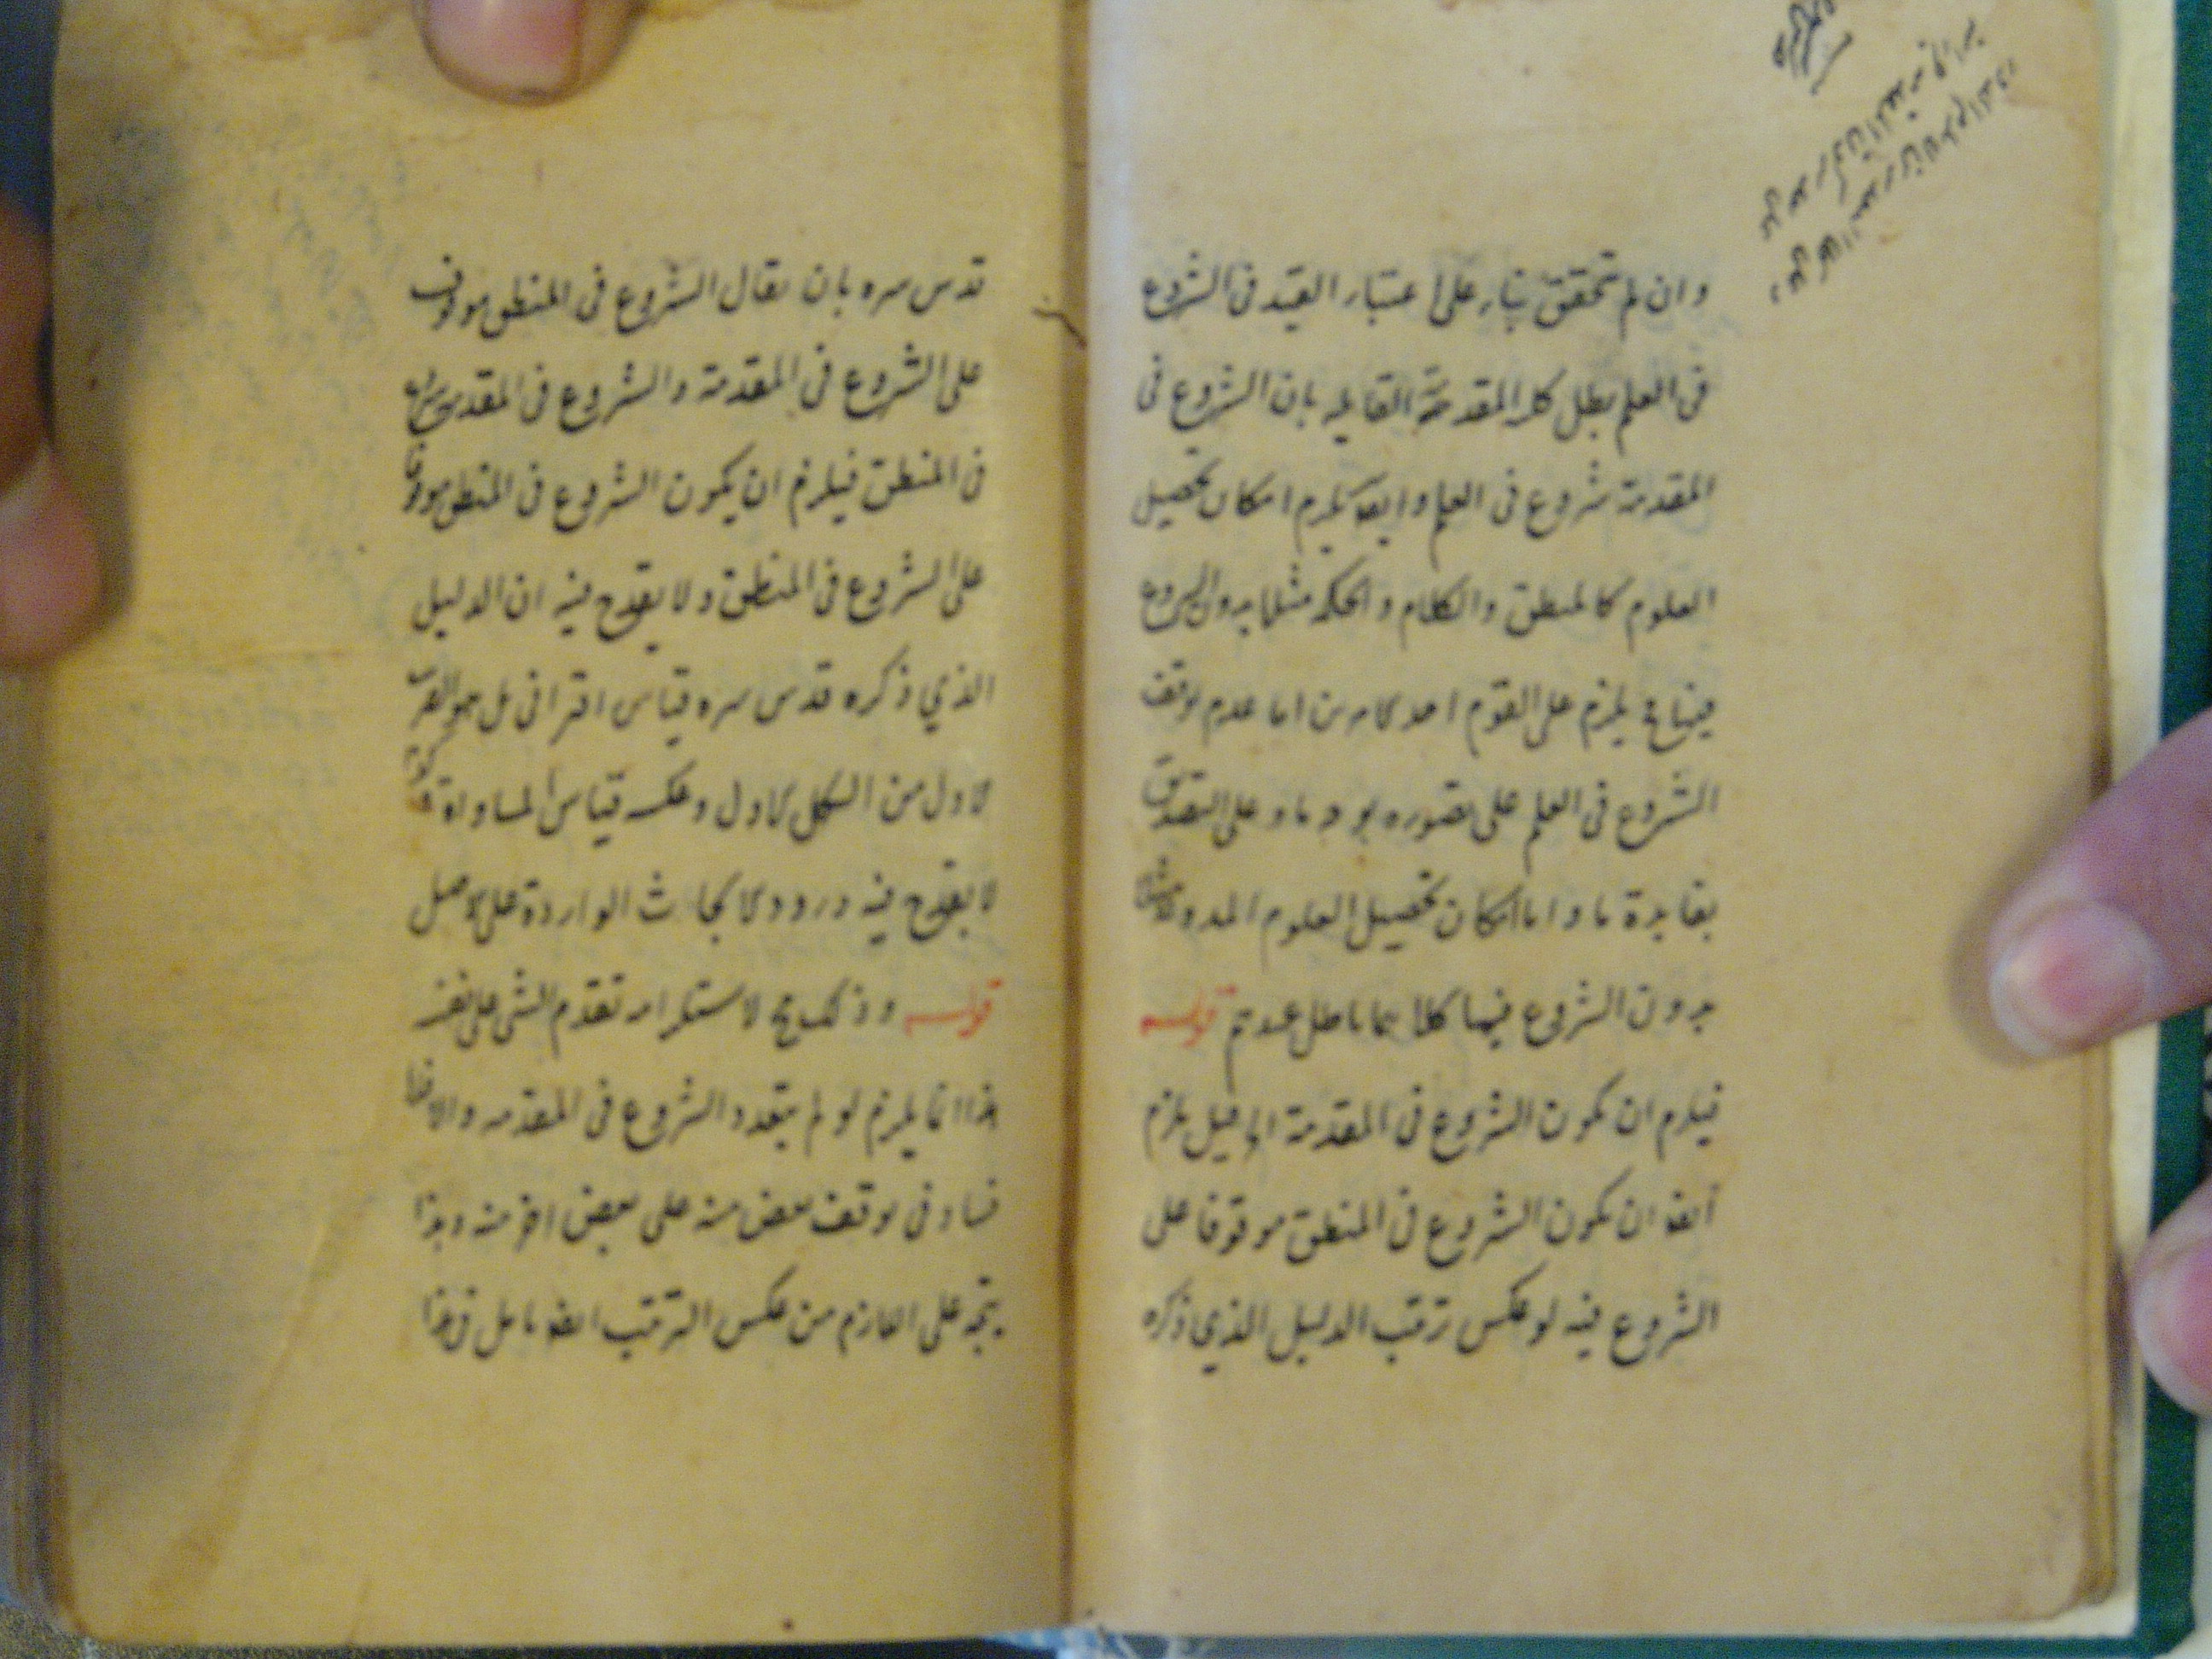 وان لم تحقق بناء على اعتبار القيد فى الشروع
فى العلم بطل كلا المقدمة القايله بان الشروع فى
المقدمة شروع فى العلم وايضا يلزم امكان تحصيل
العلوم كالمنطق والكلام والحكمه مثلا بدون الشروع
فيها يلزم على القوم احد الامرين اما عدم توقف
الشروع فى العلم على تصوره بوجه ما وعلى التصديق
بفايدة ما واما امكان تحصيل العلوم المدونة
بدون الشروع فيها كلاهما باطل عندهم قوله
فيلزم ان يكون الشروع فى المقدمة الخ قيل يلزم
ايضا ان يكون الشروع فى المنطق موقوفا على
الشروع فيه لو عكس ترتيب الدليل الذي ذكره
قدس سره بان يقال الشروع فى المنطق موقوف
على الشروع فى المقدمة والشروع فى المقدمة شروع
فى المنطق فيلزم ان يكون الشروع فى المنطق موقوفا
على الشروع فى المنطق ولا يقدح فيه ان الدليل
الذي ذكره قدس سره قياس اقترانى بل هو الضرب
الاول من الشكل الاول وعكسه قياس المساواة
لا يقدح فيه ورود الابحاث الواردة على الاصل
قوله وذلك لاستلزامه تقدم الشى على نفسه
هذا انما يلزم لو لم يتعدد الشروع فى المقدمه والا فلا
فساد فى توقف بعض منه على بعض اخر منه وهذا
يتجه على اللازم من عكس الترتيب ايضا تامل فى هذا